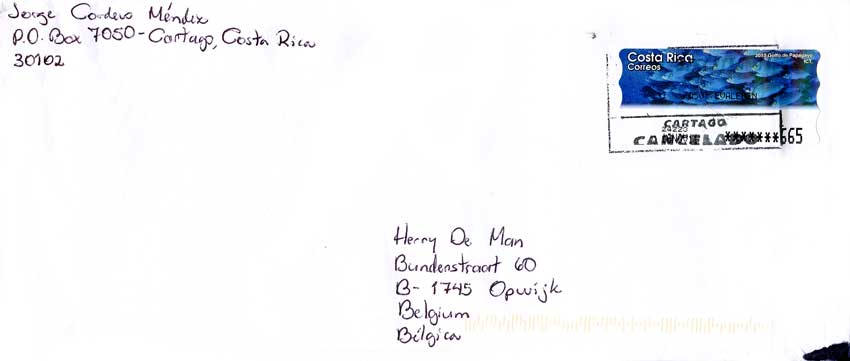 Jorge Cordero Méndez
P.O. Box 7050-Cartago, Costa Rica
30102
Costa Rica
Correos
2010 Golfo de Papagayo
ICT
CARTAGO
24223
CANCELADO
*******665
Herry De Man
Bundenstraat 60
B-1745 Opwijk
Belgium
Bélgica